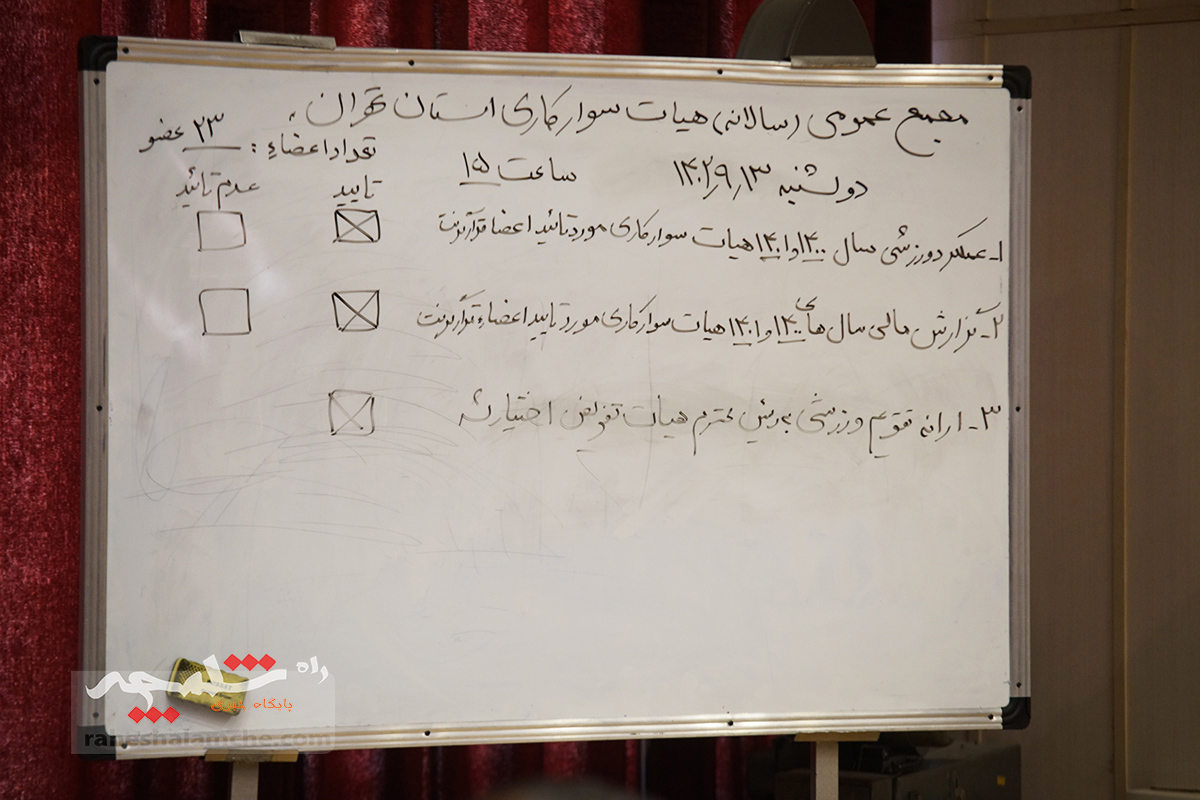 مجمع عمومی (سالانه) هیات سوارکاری استان تهران
تعداد اعضاء : ۲۳ عضو
دوشنبه ۱۴۰۲٫۹٫۱۳ ساعت ۱۵
تایید عدم تائید
۱- عملکرد ورزشی سال ۱۴۰۰ و ۱۴۰۱ هیات سوارکاری مورد تائید اعضا قرار گرفت
۲- گزارش مالی سال های ۱۴۰۰ و ۱۴۰۱ هیات سوارکاری مورد تایید اعضاء قرار گرفت
۳- ارائه تقویم ورزشی به رئیس محترم هیات تفویض اختیار شد
راه شلمچه
پایگاه خبری
raheshalamche.com